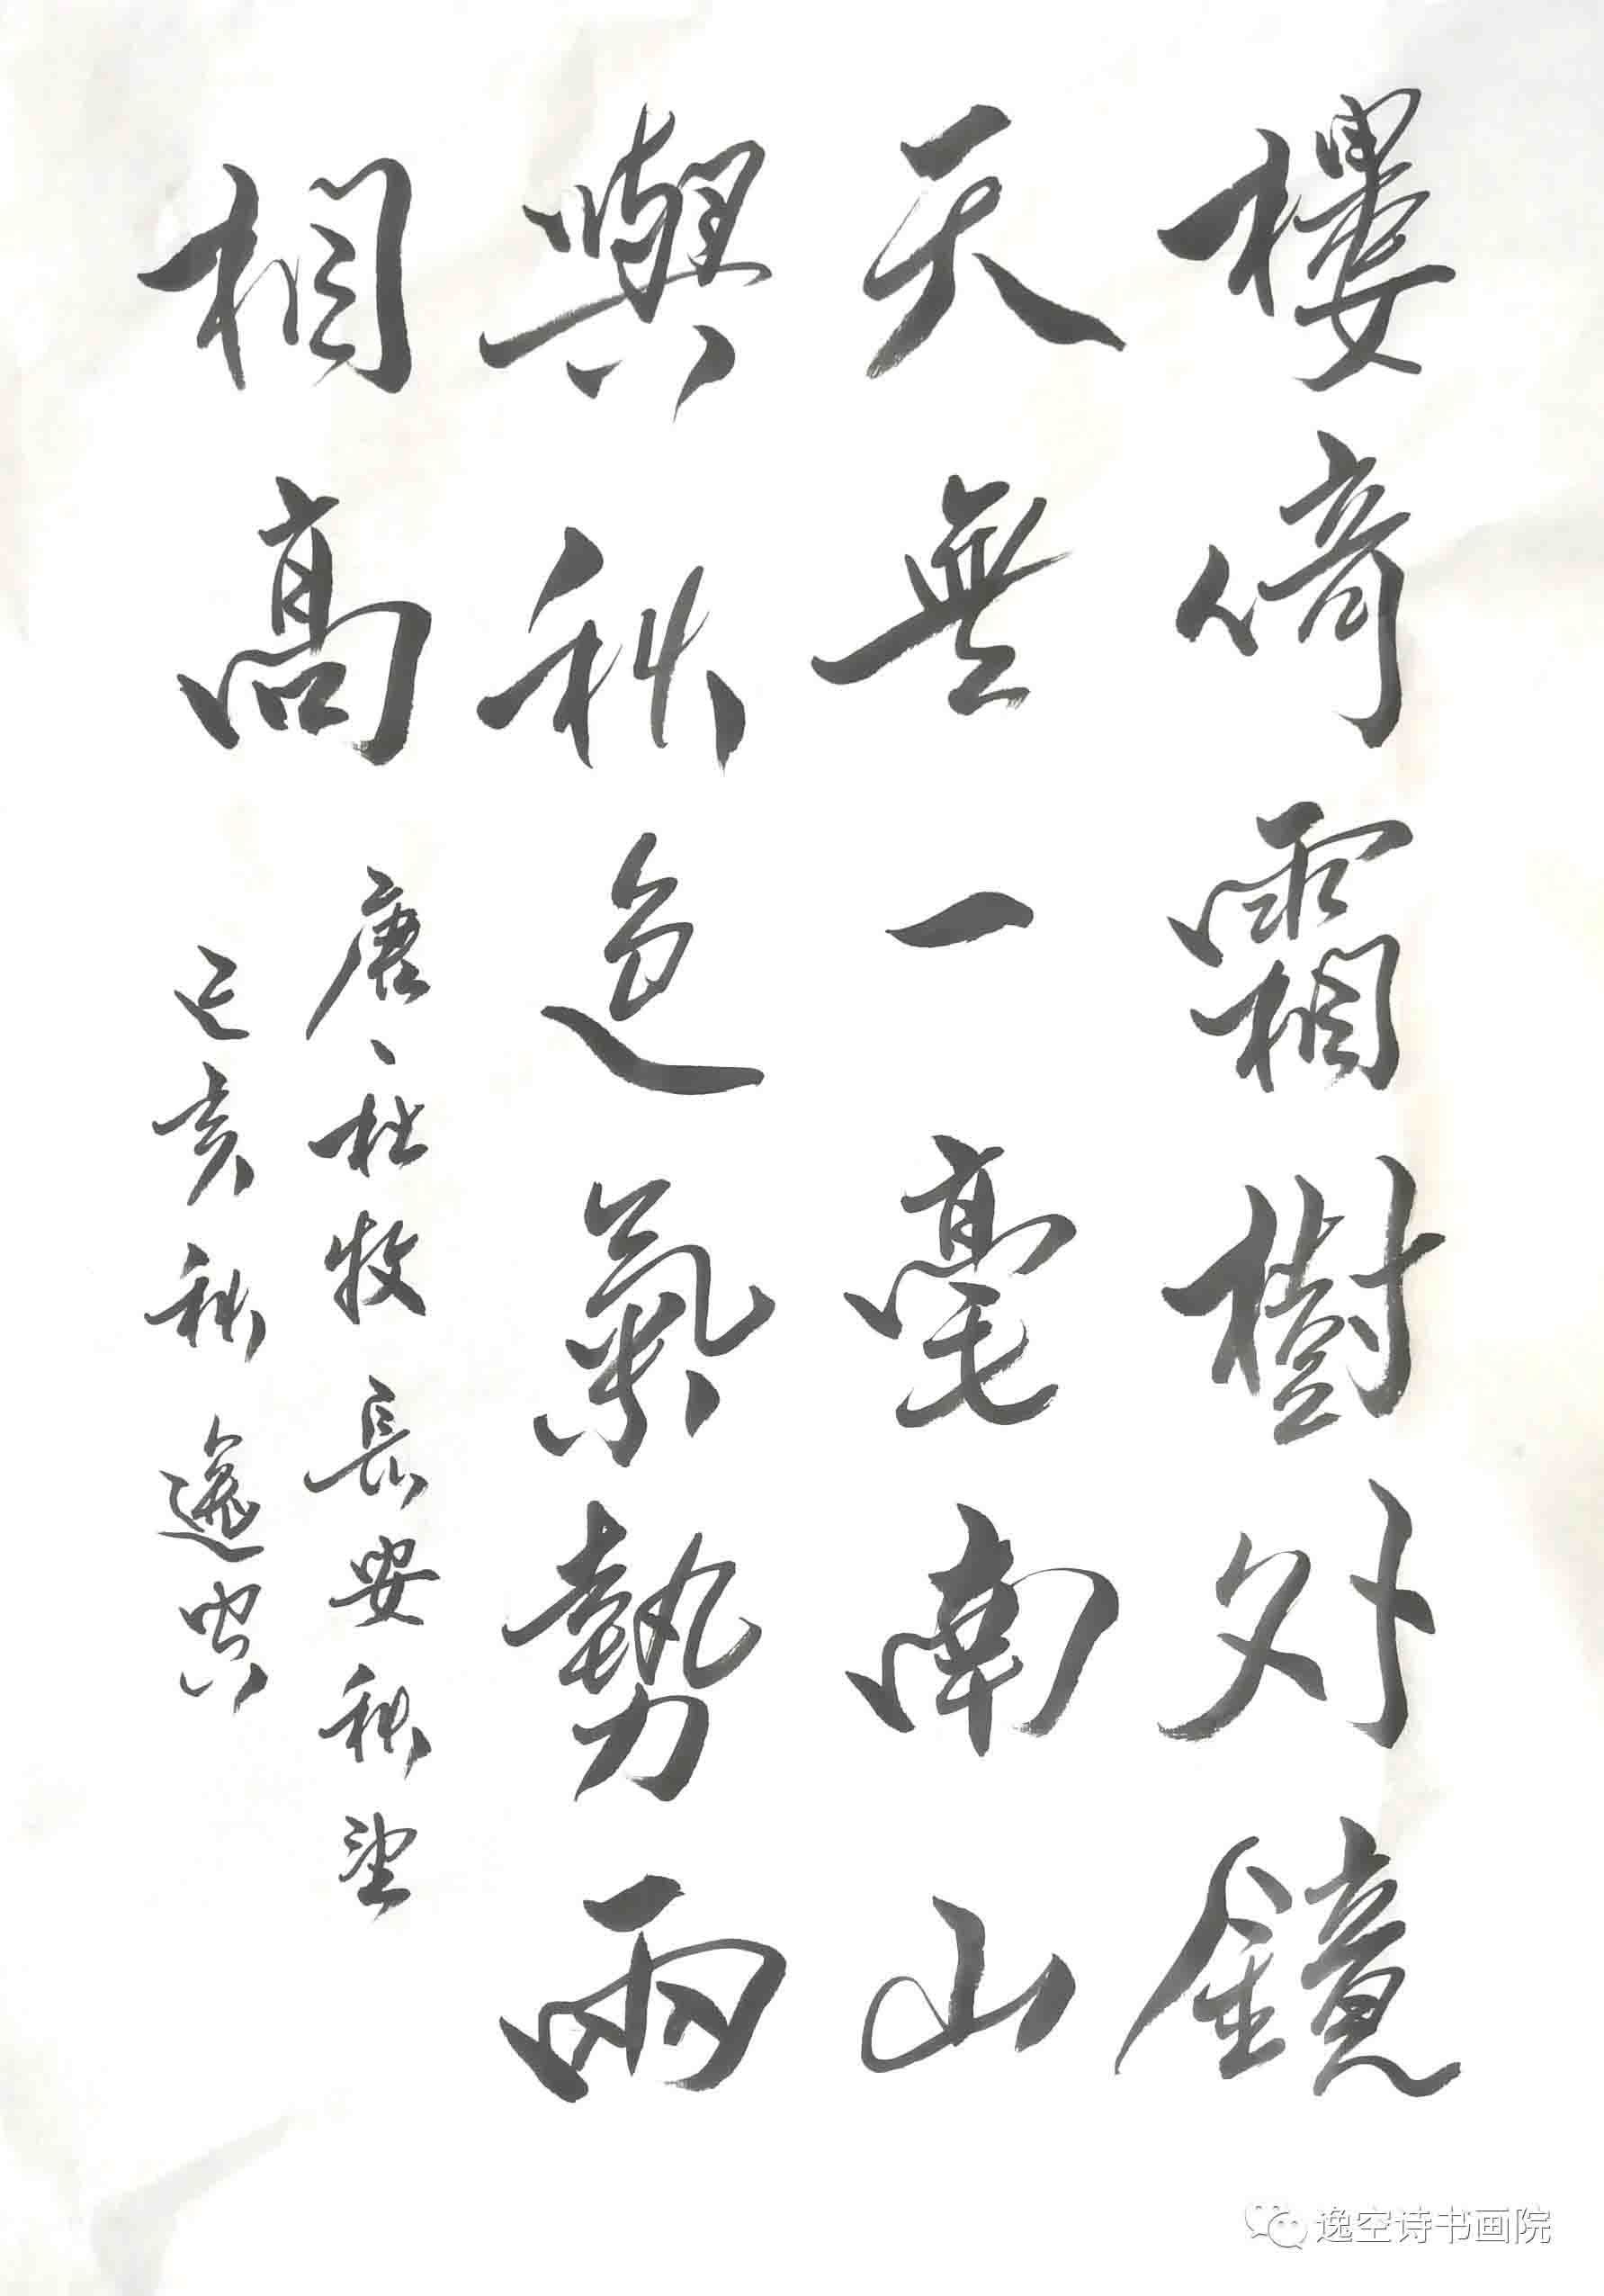 樓倚霜樹外鏡
天無一毫南山
與秋色氣勢兩
相高
唐、杜牧長安秋望
己亥秋逸空
逸空诗书画院